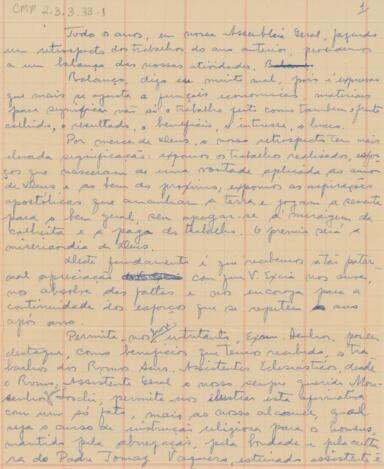 CMP 2.3.3.33.1
1
Todo o ano, em nossa Assembléia Geral, fazendo
um retrospecto dos trabalhos do ano anterior, procedemos
a um balanço das nossas atividades.
Balanço, digo eu muito mal, pois é expressão
que mais se ajusta a funções economicas, materiais
para significar não só o trabalho feito como tambem o fruto
colhido, o resultado, o beneficio, o interesse, o lucro.
Por merce de Deus, o nosso retrospecto tem mais
elevada significação: expomos o trabalho realisado, esfor-
ços que nasceram de uma vontade aplicada ao amor
de Deus, e ao bem do proximo; expomos as aspirações
apostólicas que amanham a terra e jogam a semente
para o bem geral, sem apegar-se á miragem da
colheita e á paga do trabalho. O premio será a
misericordia de Deus.
Neste fundamento é que recebemos a tão pater-
nal apreciação com que V. Excia nos ouve,
nos absolve das faltas e nos encoraja para a
continuidade dos esforços que se repetem ano
após ano.
Permita-nos, entretanto, Exmo. Senhor, por em
destaque, como beneficios que temos recebido, o tra-
balho dos Rvmos Snrs. Assistentes Eclesiasticos, desde
o Rvmo. Assistente Geral o nosso sempre querido Mon-
senhor, permita-nos ilustrar esta afirmativa
com um só fato, mais ao nosso alcance, qual
seja o curso de instrução religiosa para o
mantido pela abnegação, pela bondade e pela cultu-
ra do Padre Tomaz Vaquero, estimado assistente